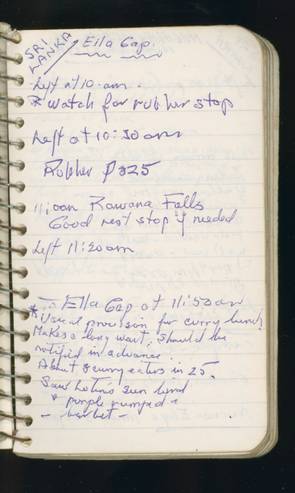 SRI LANKA
Ella Gap
Left at 10 am.
* Watch for rubber stop
Left at 10:30 am
Rubber
11:00am Rawana Falls
Good rest stop if needed
Left 11:20am
Ella Gap at 11:50am
* Usual provision for curry lunch
Makes a long wait, should be
notified in advance.
About 8 curry eaters in 25.
Saw Loten's Sun bird
+ purple rumped -
- barbet -